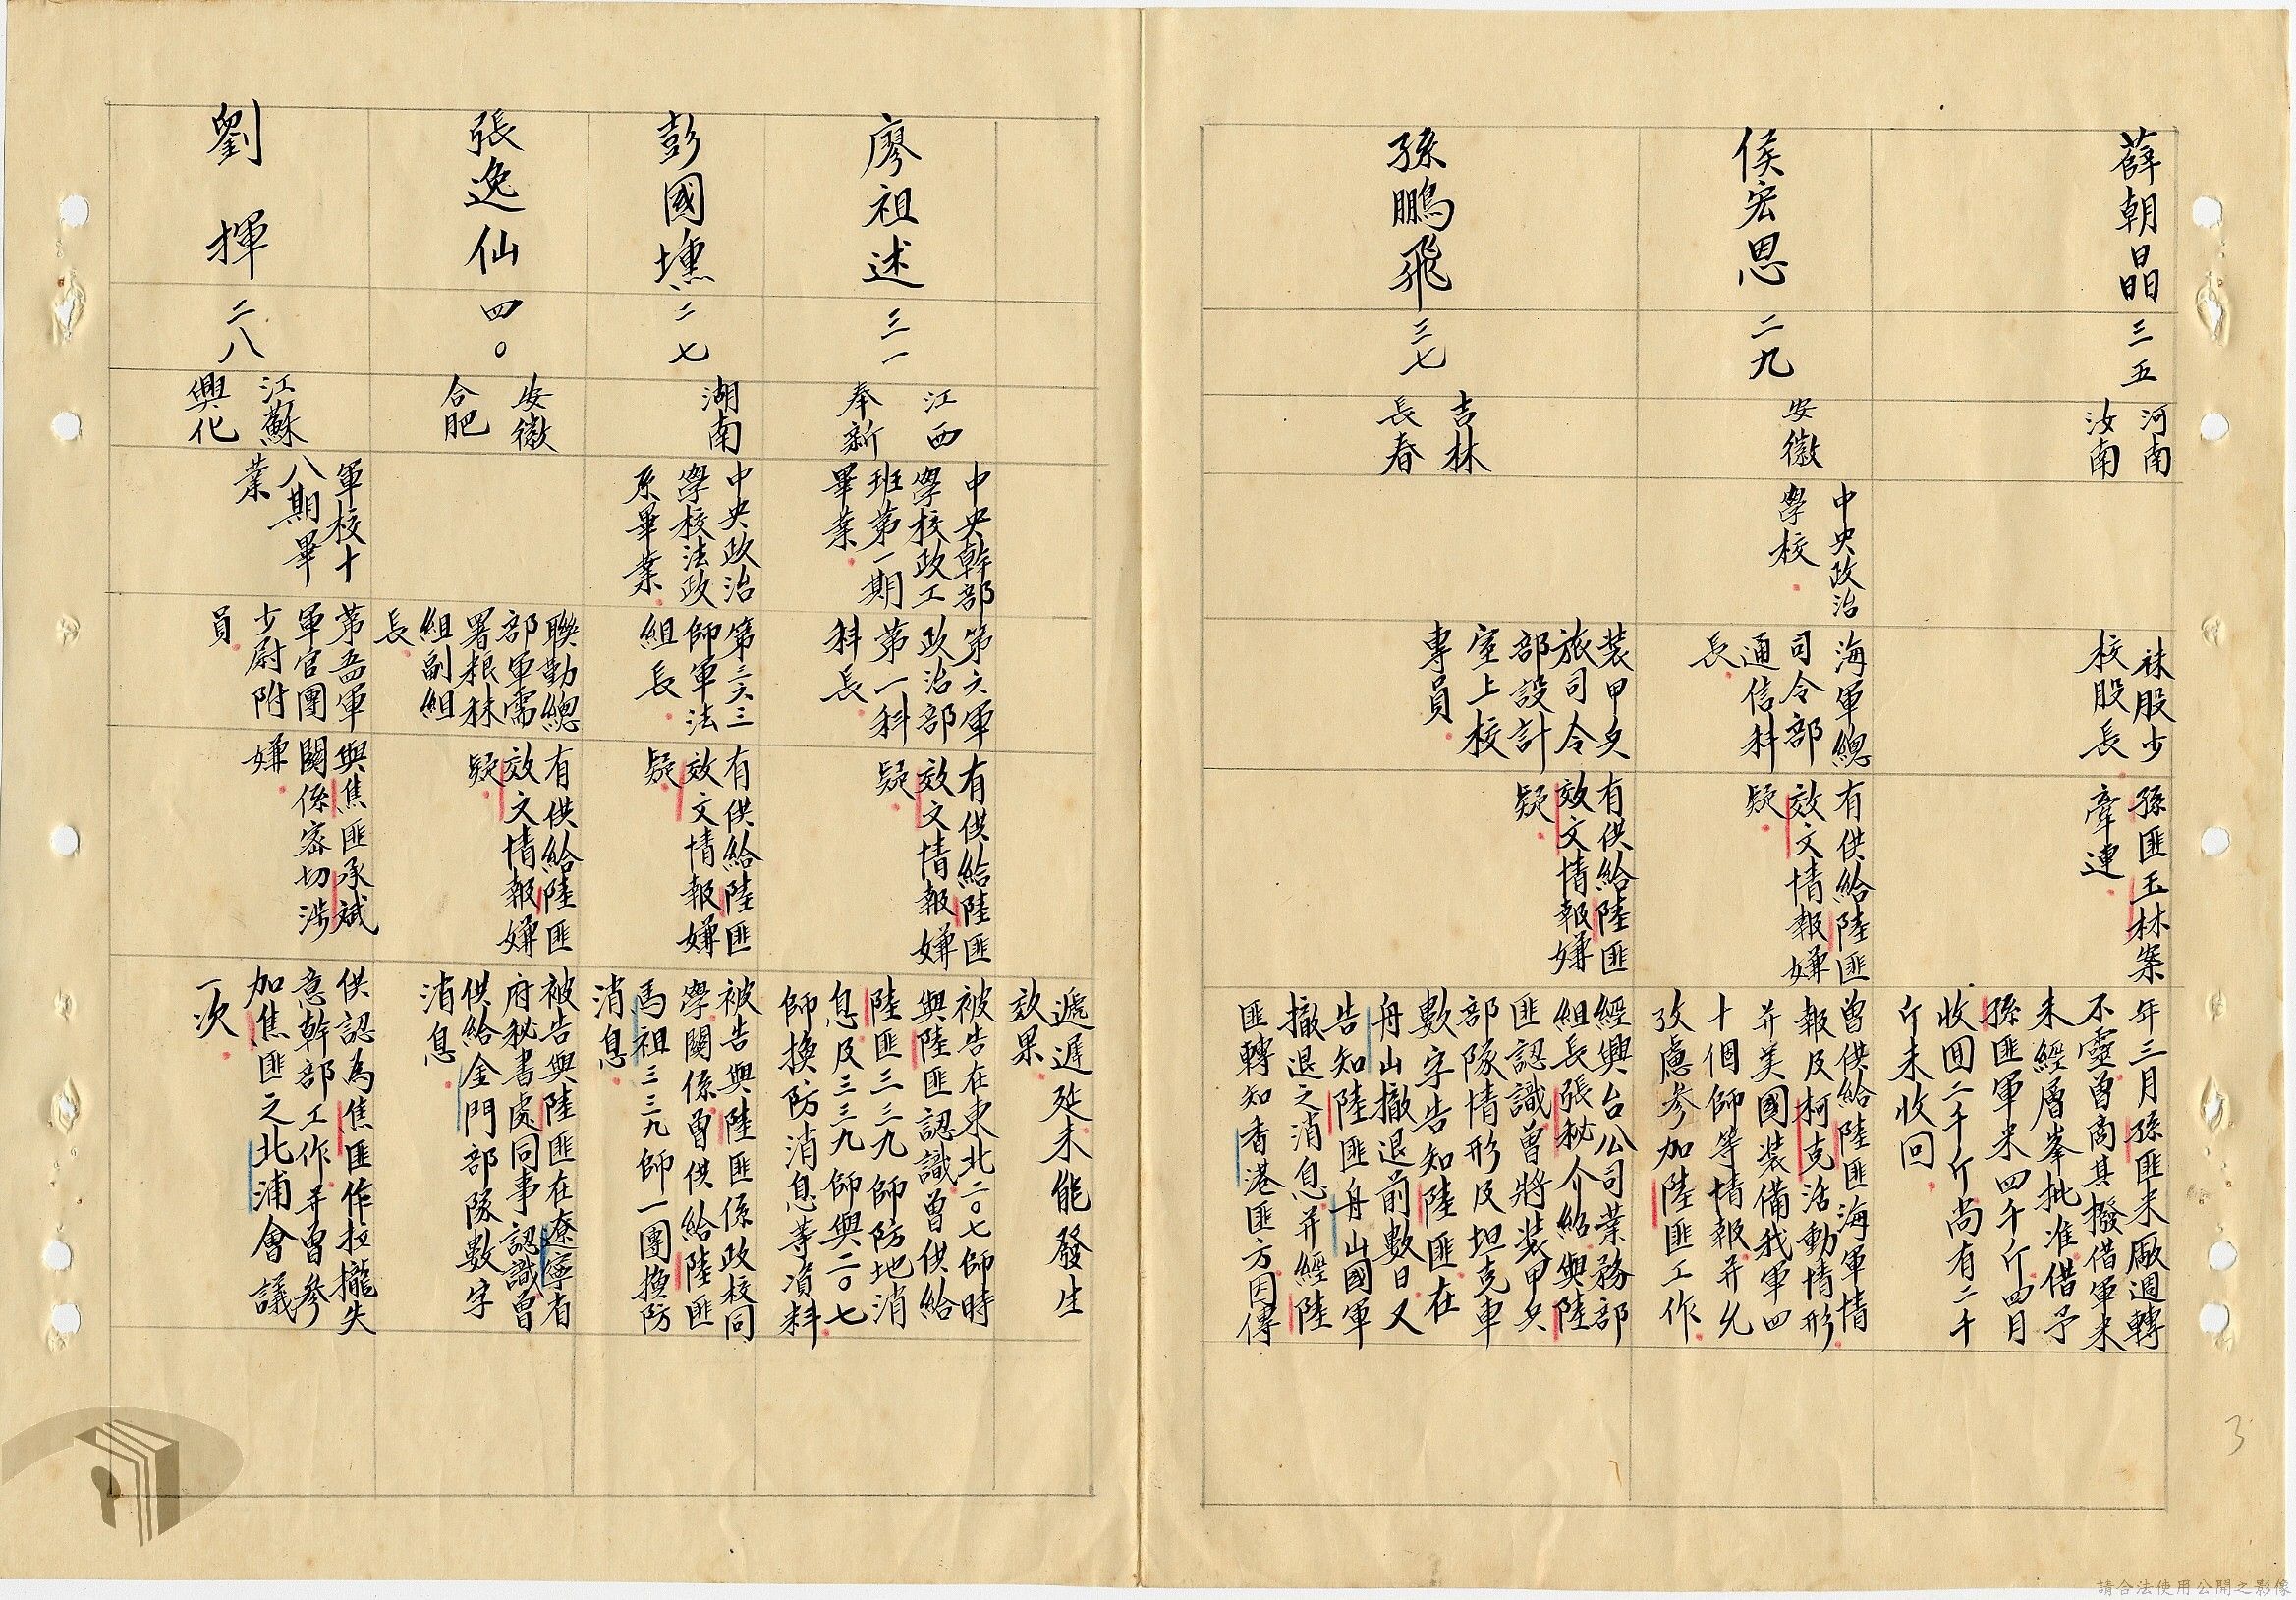 薛朝晶
三五
河南
汝南
袜股少
校股長
孫匪玉林案
牽連
年三月孫匪米廠週轉
不靈曾商其撥借軍米
未經層峯批准借予
孫匪軍米四千斤四月
收囬二千斤尚有二千
斤未收回
侯宏恩
二九
安徽
中央政治
學校
海軍總
司令部
通信科
長
有供給陸匪
效文情報嫌
疑
曾供給陸匪海軍情
報及柯克活動情形
并美國裝備我軍四
十個師等情報并允
攷慮參加陸匪工作
孫鵬飛
三七
吉林
長春
裝甲兵
旅司令
部設計
室上校
專員
有供給陸匪
效文情報嫌
疑
經興台公司業務部
組長張秘介紹與陸
匪認識曾將裝甲兵
部隊情形及坦克車
數字告知陸匪在
舟山撤退前數日又
告知陸匪舟山國軍
撤退之消息并經陸
匪轉知香港匪方因傳
遞遲延未能發生
效果
廖祖述
三一
江西
奉新
中央幹部
學校政工
班第一期
畢業
第六軍
政治部
第一科
科長
有供給陸匪
效文情報嫌
疑
被告在東北二〇七師時
與陸匪認識曾供給
陸匪三三九師防地消
息及三三九師與二〇七
師換防消息等資料
彭國壎
二七
湖南
中央政治
學校法政
系畢業
第三六三
師軍法
組長
有供給陸匪
效文情報嫌
疑
被告與陸匪係政校同
學關係曾供給陸匪
馬祖三三九師一團換防
消息
張逸仙
四〇
安徽
合肥
聯勤總
部軍需
署粮秣
組副組
長
有供給陸匪
效文情報嫌
疑
被告與陸匪在遼寧省
府秘書處同事認識曾
供給金門部隊數字
消息
劉揮
二八
江蘇
興化
軍校十
八期畢
業
第五四軍
軍官團
少尉附
員
與焦匪承斌
關係密切涉
嫌
供認為焦匪作拉攏失
意幹部工作并曾參
加焦匪之北浦會議
一次
3
請合法使用公開之影像